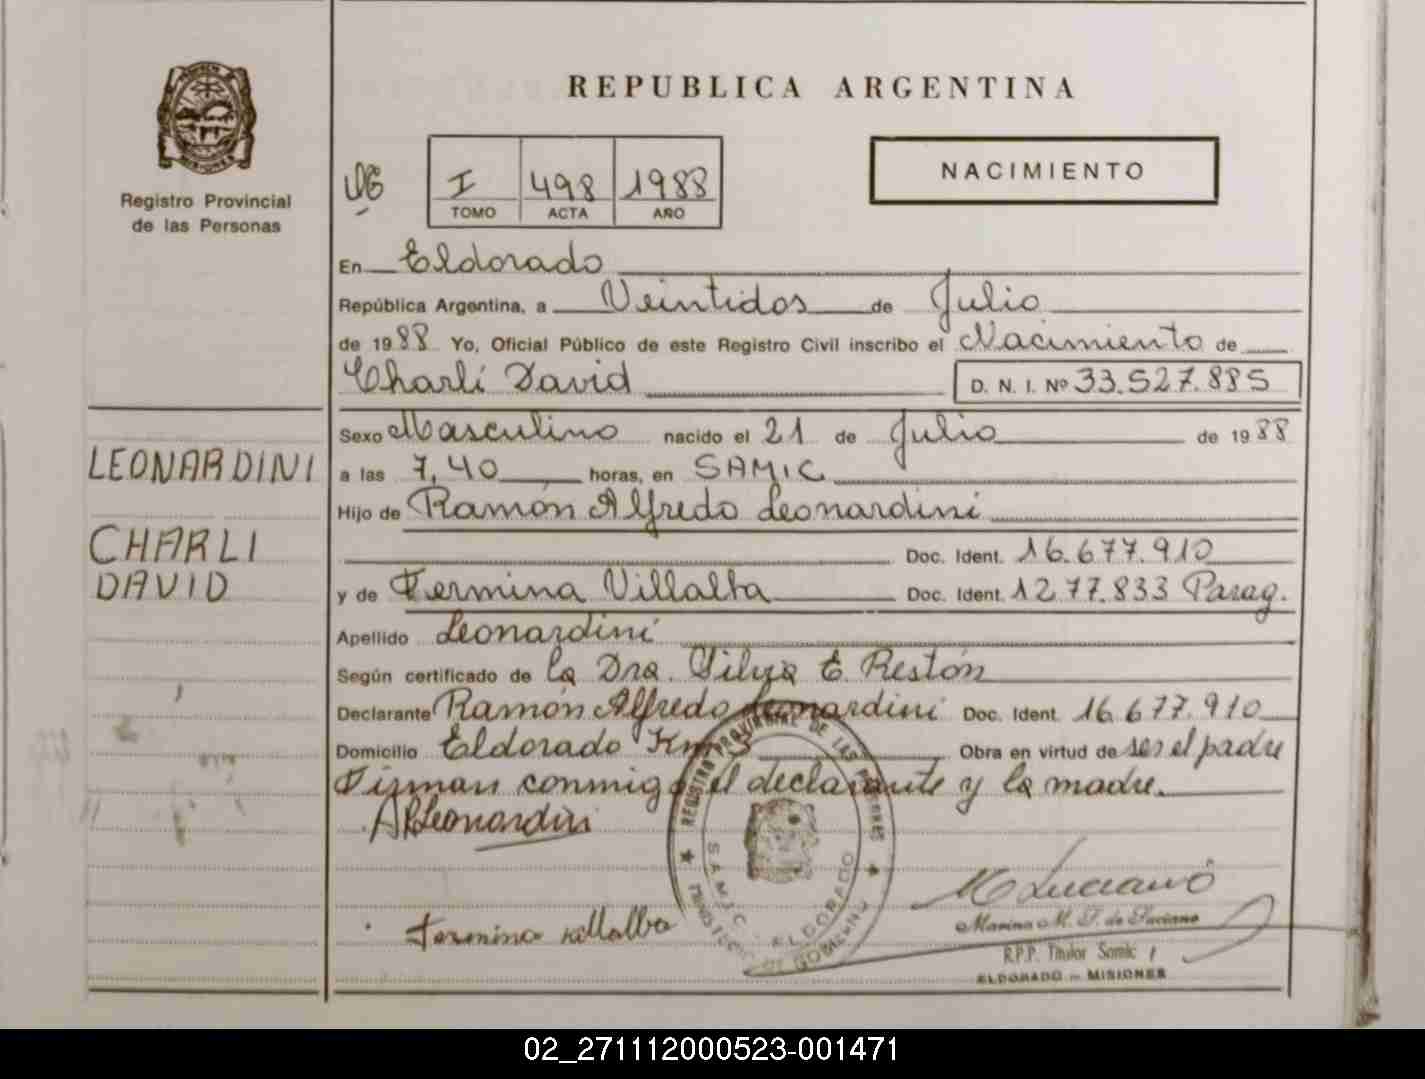 REPUBLICA ARGENTINA
PROVINCIA DE MISIONES
Registro Provincial
de las Personas
I 498 1988
TOMO ACTA AÑO
NACIMIENTO
En Eldorado
República Argentina, a Veintidos de Julio
de 1988 Yo, Oficial Público de este Registro Civil inscribo el Nacimiento de
Charli David D. N. I. Nº 33.527.885
LEONARDINI
CHARLI
DAVID
Sexo Masculino nacido el 21 de Julio de 1988
a las 7,40 horas, en SAMIC
Hijo de Ramón Alfredo Leonardini
Doc. Ident. 16.677.910
y de Fermina Villalba Doc. Ident. 1277.833 Parag.
Apellido Leonardini
Según certificado de la Dra. Silvia E. Restón
Declarante Ramón Alfredo Leonardini Doc. Ident. 16.677.910
Domicilio Eldorado Km Obra en virtud de ser el padre
Firman conmigo el declarante y la madre.
ARLeonardini
Fermina Villalba
REGISTRO PROVINCIAL DE LAS PERSONAS
S.A.M.I.C. ELDORADO
MINISTERIO DE GOBIERNO
M Luciano
Marina M. F. de Luciano
R.P.P. Titular Samic
ELDORADO - MISIONES
02_271112000523-001471